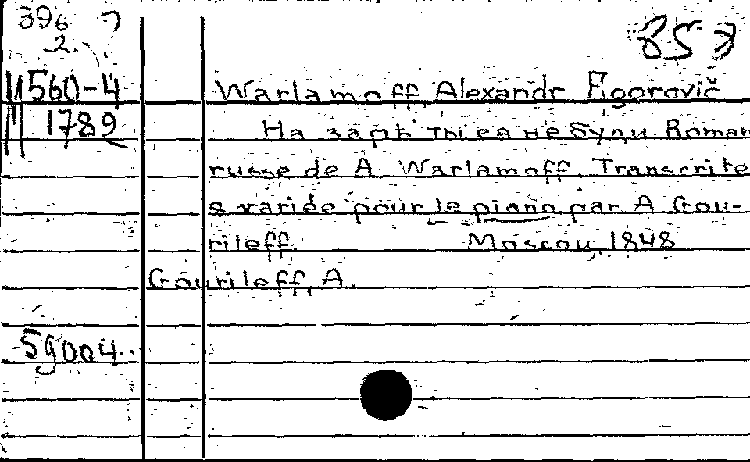 396
2.
853
560-4
1789
Warlamoff, Alexandr Egorovič
На зарѣ ты ея не буди. Roman
russe de A. Warlamoff. Transcrite
& variée pour le piano par A. Gou-
rileff. Moscou, 1848
Gourileff, A.
59004